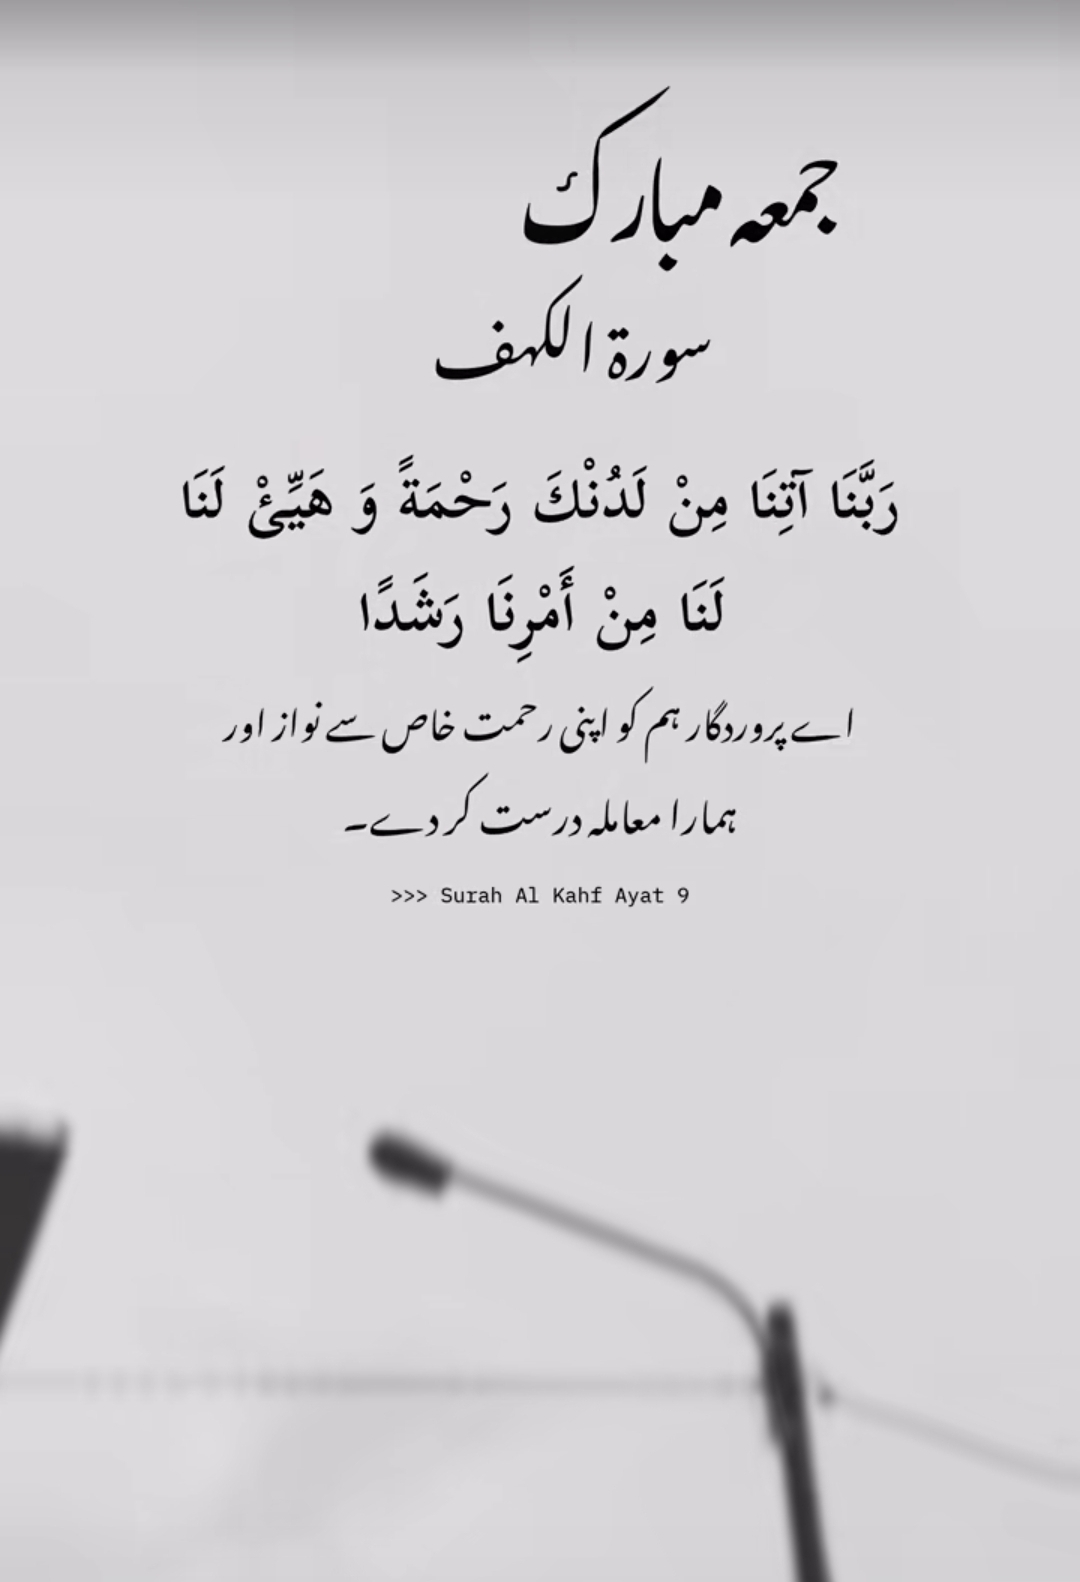 جمعہ مبارک
سورة الكهف
رَبَّنَا آتِنَا مِنْ لَدُنْكَ رَحْمَةً وَ هَيِّئْ لَنَا
لَنَا مِنْ أَمْرِنَا رَشَدًا
اے پروردگار ہم کو اپنی رحمت خاص سے نواز اور
ہمارا معاملہ درست کر دے۔
>>> Surah Al Kahf Ayat 9